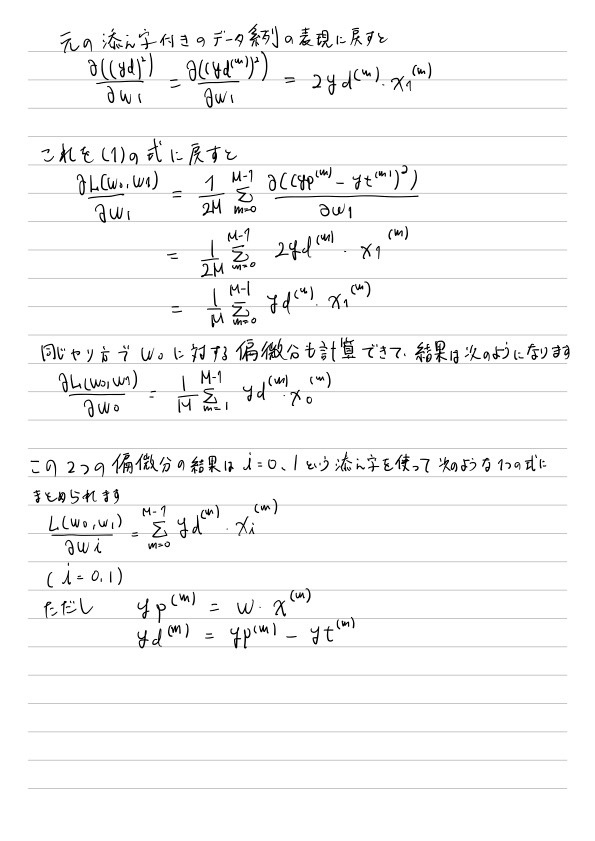 元の添え字付きのデータ系列の表現に戻すと
∂((yd)²)/∂w₁ = ∂((yd⁽ᵐ⁾)²)/∂w₁ = 2yd⁽ᵐ⁾・x₁⁽ᵐ⁾
これを(1)の式に戻すと
∂L(w₀,w₁)/∂w₁ = 1/2M Σ_{m=0}^{M-1} ∂((yp⁽ᵐ⁾ - yt⁽ᵐ⁾)²)/∂w₁
= 1/2M Σ_{m=0}^{M-1} 2yd⁽ᵐ⁾・x₁⁽ᵐ⁾
= 1/M Σ_{m=0}^{M-1} yd⁽ᵐ⁾・x₁⁽ᵐ⁾
同じやり方でw₀に対する偏微分も計算できて、結果は次のようになります
∂L(w₀,w₁)/∂w₀ = 1/M Σ_{m=1}^{M-1} yd⁽ᵐ⁾・x₀⁽ᵐ⁾
この2つの偏微分の結果はi=0、1という添え字を使って次のような1つの式に
まとめられます
L(w₀,w₁)/∂wi = Σ_{m=0}^{M-1} yd⁽ᵐ⁾・xi⁽ᵐ⁾
(i=0,1)
ただし yp⁽ᵐ⁾ = w・x⁽ᵐ⁾
yd⁽ᵐ⁾ = yp⁽ᵐ⁾ - yt⁽ᵐ⁾